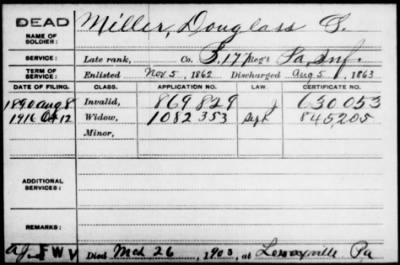 DEAD
NAME OF SOLDIER:
Miller, Douglass S.
SERVICE:
Late rank, Co. 177 Reg't Pa. Inf.
TERM OF SERVICE:
Enlisted Nov 5, 1862 Discharged Aug 5, 1863
DATE OF FILING. CLASS. APPLICATION NO. LAW. CERTIFICATE NO.
1890 Aug 8 Invalid, 869829 J 630053
1916 Oct 12 Widow, 1082353 Sep 8 845205
Minor,
ADDITIONAL SERVICES:
REMARKS:
Died Mch 26, 1903 at Pa